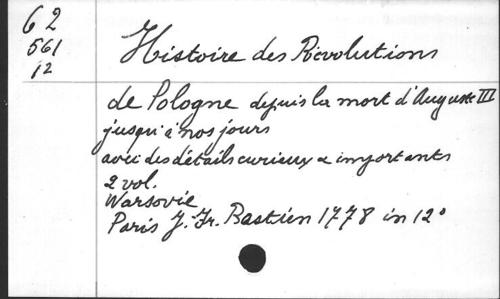 62
561
12
Histoire des Révolutions
de Pologne depuis la mort d'Auguste III
jusqu'à nos jours
avec des détails curieux & importants
2 vol.
Warsovie
Paris J. Fr. Bastien 1778 in 12°